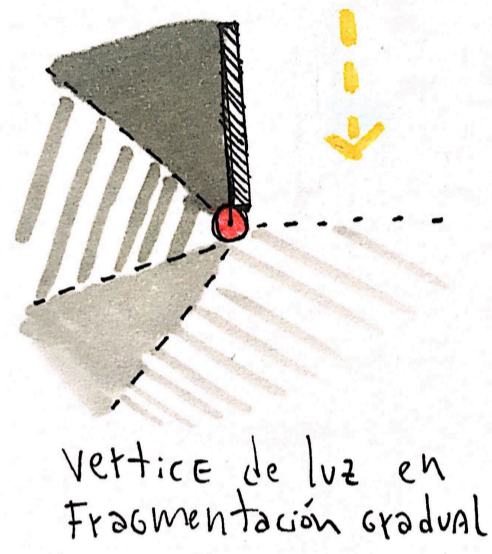 vertice de luz en
Fragmentación gradual